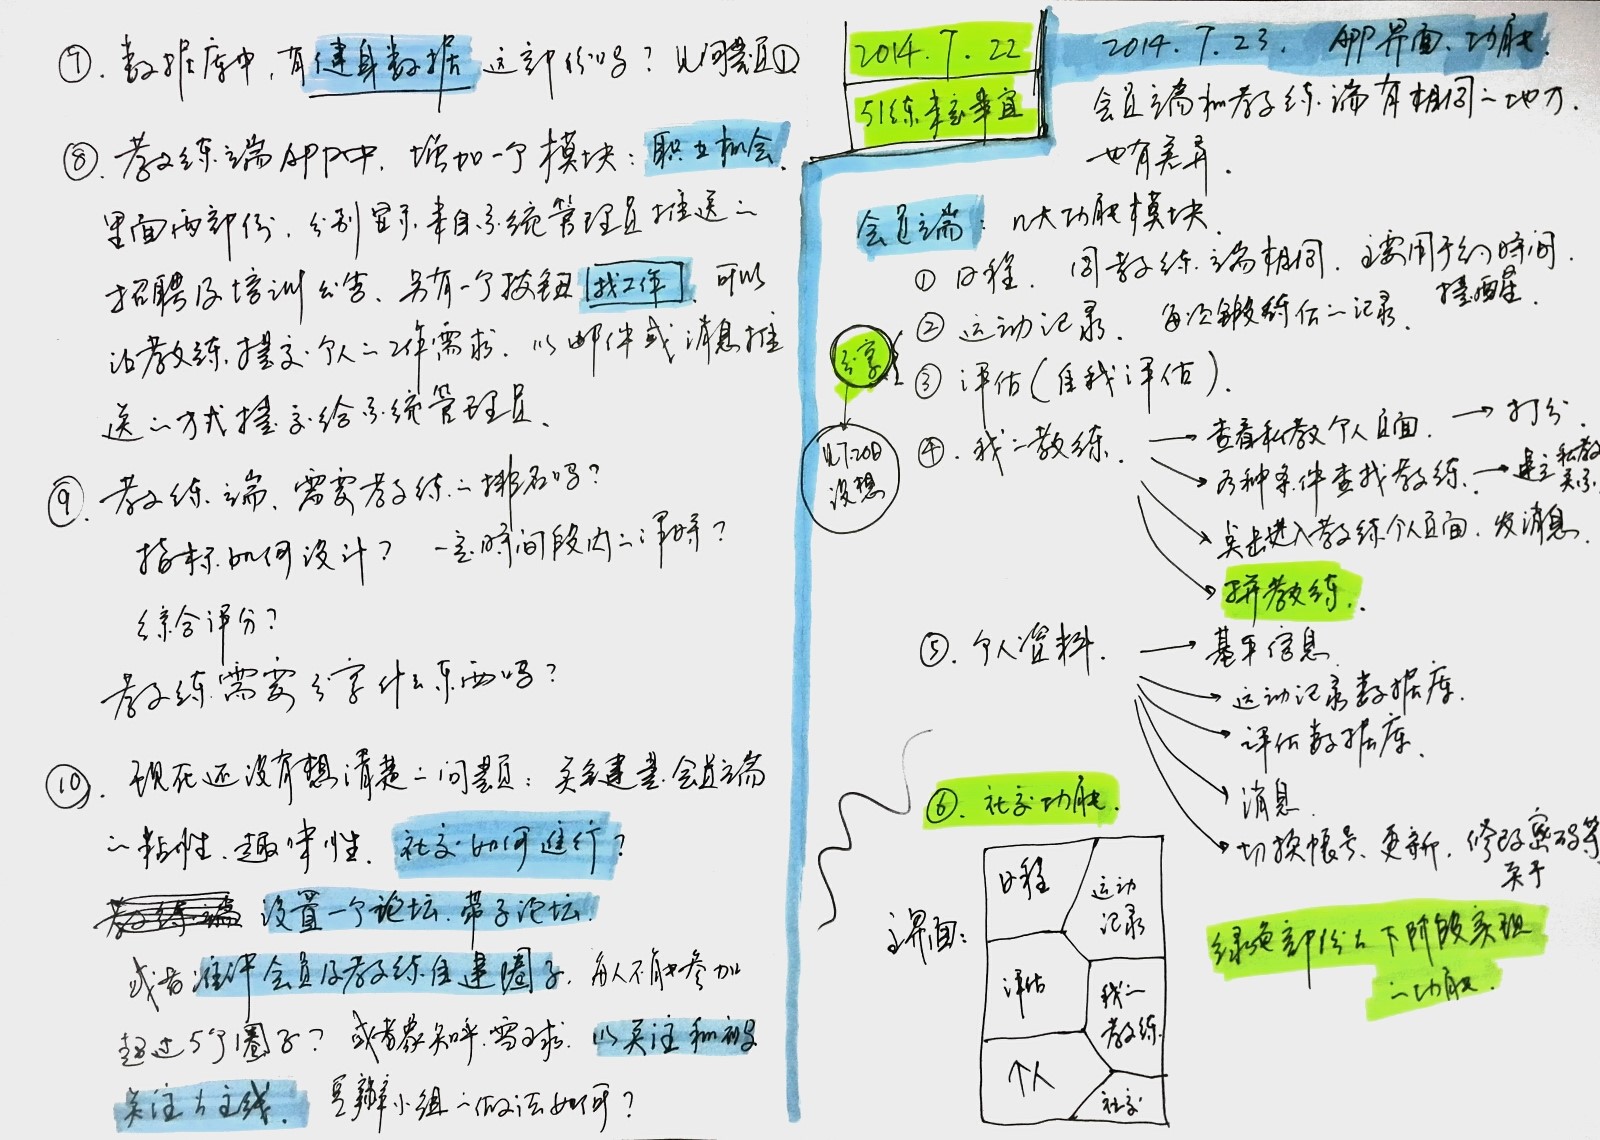 ⑦. 数据库中,有健身数据这部份吗?见问题①
⑧. 教练端APP中,增加一个模块:职业机会.
里面两部份,分别显示来自系统管理员推送の
招聘及培训公告、另有一个按钮找工作,可以
让教练提交个人の工作需求,以邮件或消息推
送の方式提交给系统管理员、
⑨. 教练端,需要教练の排名吗?
指标如何设计?一定时间段内の课时?
综合评分?
教练需要分享什么东西吗?
⑩. 现在还没有想清楚の问题:关键是会员端
の粘性、趣味性、社交如何进行?
设置一个论坛、带子论坛.
或者准许会员及教练自建圈子,每人不能参加
超过5个圈子?或者象知乎、雪球,以关注和被
关注为主线. 豆瓣小组の做法如何?
2014.7.22
51练事宜
2014.7.23. APP界面、功能.
会员端和教练端有相同の地方,
也有差异.
会员端:几大功能模块.
① 日程. 同教练端相同,主要用于约时间,
提醒.
② 运动记录. 每次锻炼后の记录.
分享
③ 评估(自我评估).
见7.20日
设想
④. 我の教练. → 查看私教个人页面. → 打分.
→ 各种条件查找教练. → 建立私教
关系.
→ 点击进入教练个人页面,发消息.
→ 拼教练.
⑤. 个人资料. → 基本信息
→ 运动记录数据库.
→ 评估数据库.
→ 消息
→ 切换帐号、更新、修改密码等
关于
⑥. 社交功能.
主界面:
日程
运动
记录
评估
我の
教练
个人
社交
绿色部份为下阶段实现
の功能.